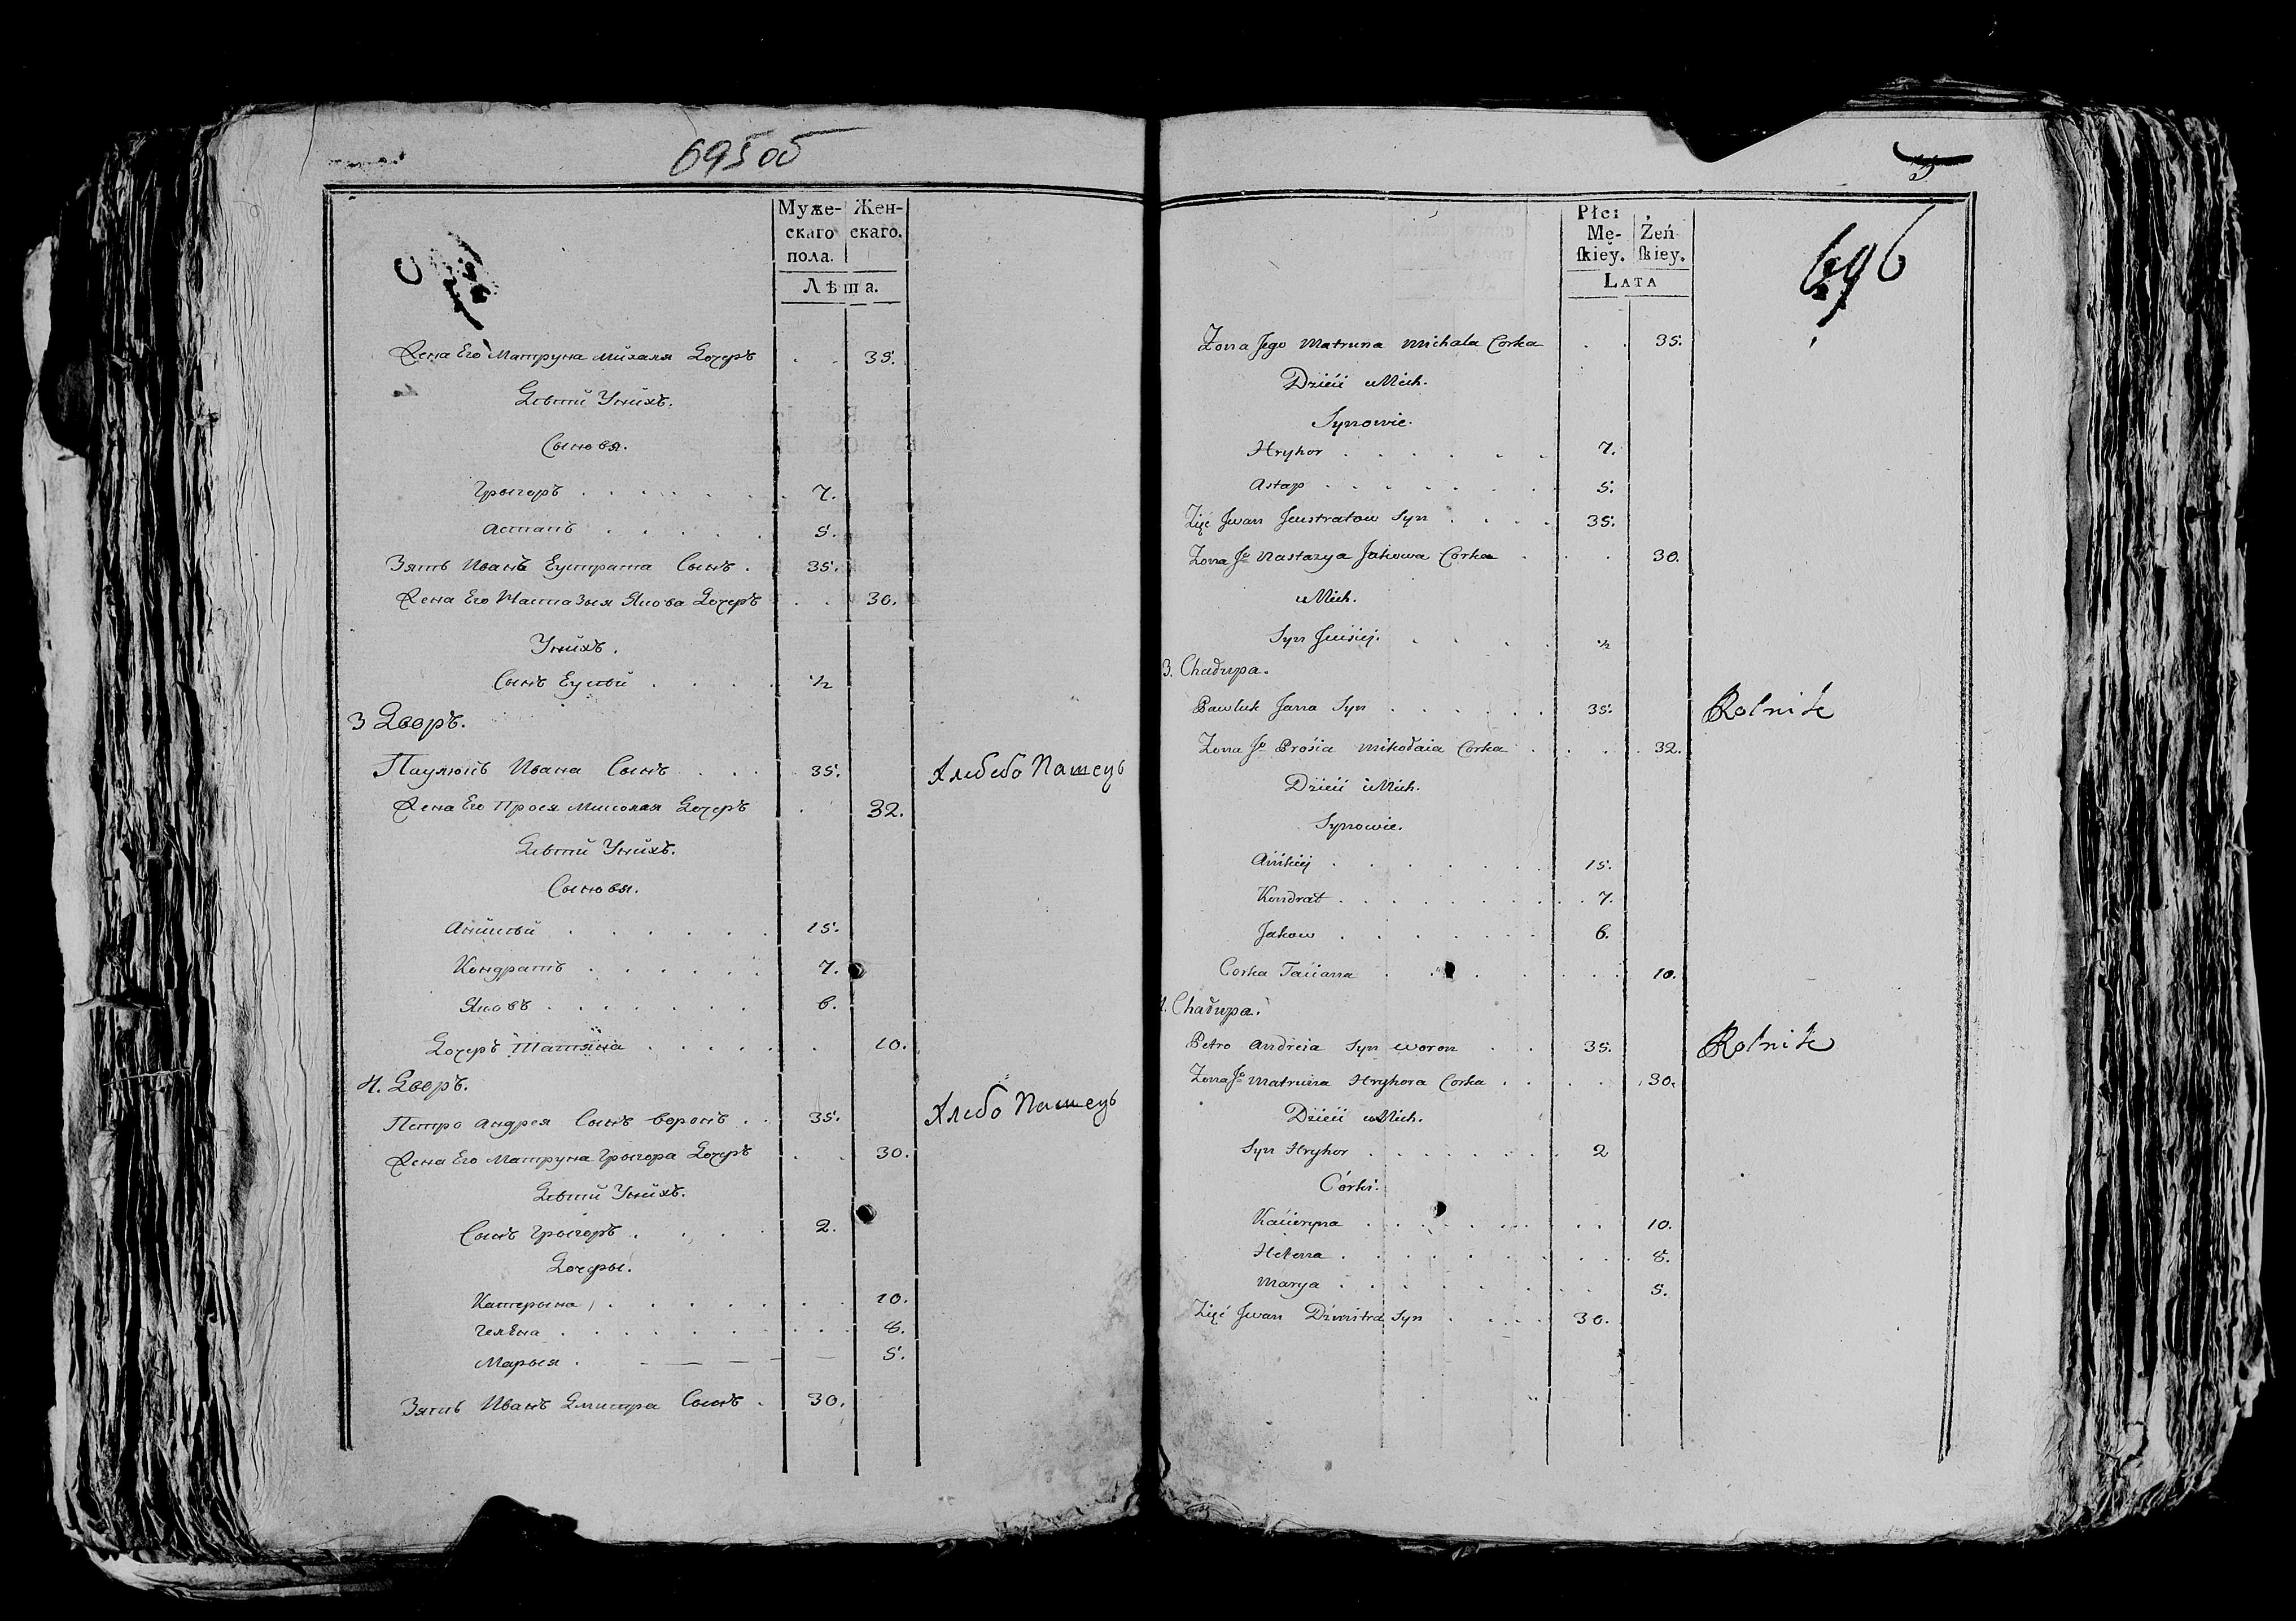 695 об
Муже- Жен-
скаго скаго.
пола.
Лѣта.
Жена Его Матруна Михала Дочеръ . . 35.
Дѣти Унихъ.
Сыновя.
Грыгоръ . . . . . . 7.
Астапъ . . . . . 5.
Зять Иванъ Еустрата Сынъ . 35.
Жена Его Настазыя Якова Дочеръ . . 30.
Унихъ.
Сынъ Еусѣй . . . . ½
3 Дворъ.
Паулюкъ Ивана Сынъ . . . 35. Хлебо Пашецъ
Жена Его Прося Миколая Дочеръ . 32.
Дѣти Унихъ.
Сыновя.
Аникѣй . . . . . . 15.
Кондратъ . . . . . . 7.
Яковъ . . . . . . . 6.
Дочеръ Татяна . . . . . . 10.
4. Дворъ.
Петро Андрея Сынъ Воронъ . . 35. Хлебо Пашецъ
Жена Его Матруна Грыгора Дочеръ . . 30.
Дѣти Унихъ.
Сынъ Грыгоръ . . . . 2.
Дочеры.
Катерына . . . . . . . 10.
Гелѣна . . . . . . . . . 8.
Марыя . — — — — 5.
Зять Иванъ Дмитра Сынъ . 30.
696
Płci
Mę- Żeń
skiey. skiey.
LATA
Zona Jego Matruna Michała Corka . . 35.
Dzieci u Nich.
Synowie.
Hryhor . . . . . . 7.
Astap . . . . . . . 5.
Zięć Jwan Jeustratow Syn . . . . 35.
Zona Jo Nastazya Jakowa Corka . . . 30.
u Nich.
Syn Jeusiej . . . . . ½
3. Chałupa.
Pawluk Jana Syn . . . . . . 35. Rolnik
Zona Jo Prosia Mikołaia Corka . . . . 32.
Dzieci u Nich.
Synowie.
Anikiej . . . . . . . 15.
Kondrat . . . . . . . . . 7.
Jakow . . . . . . . 6.
Corka Taciana . . . . . . . 10.
4. Chałupa.
Petro Andreia Syn Woron . . 35. Rolnik
Zona Jo Matruna Hryhora Corka . . . . 30.
Dzieci u Nich.
Syn Hryhor . . . . . . . 2
Córki.
Kacieryna . . . . . . . . 10.
Helena . . . . . . . . . 8.
Marya . . . . . . . . 5.
Zięć Jwan Dźmitra Syn . . . . 30.